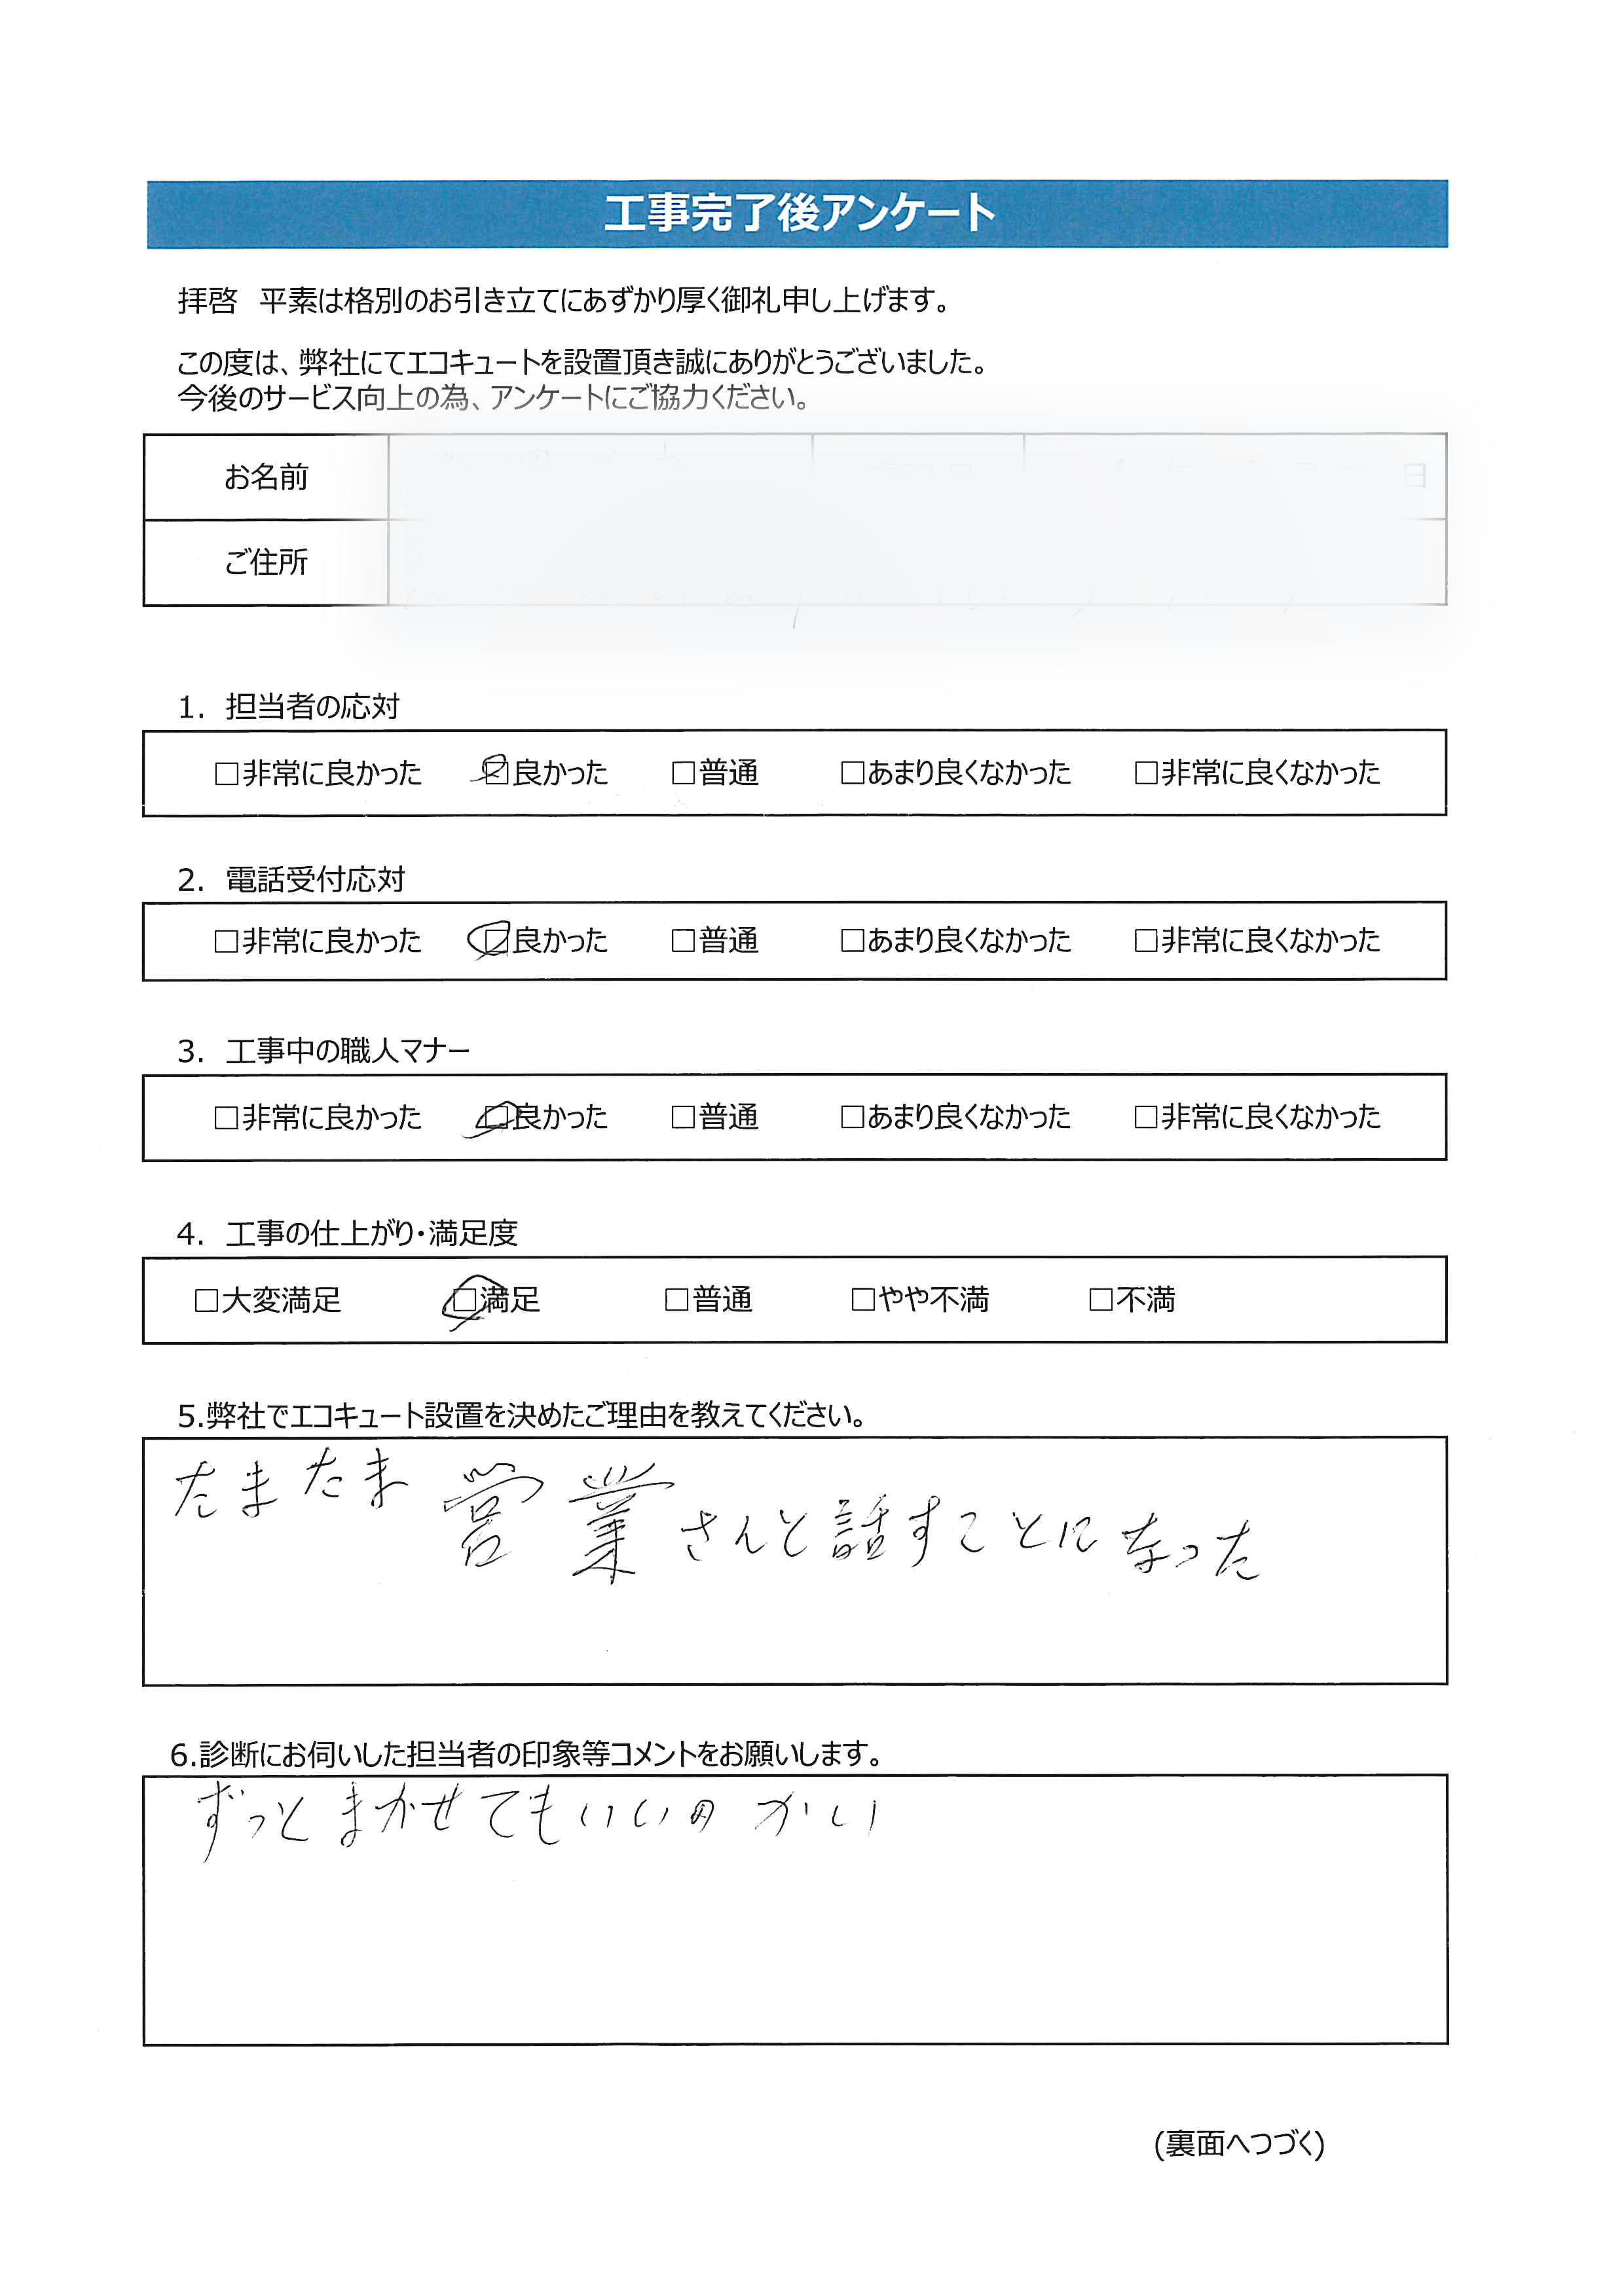 工事完了後アンケート
拝啓　平素は格別のお引き立てにあずかり厚く御礼申し上げます。
この度は、弊社にてエコキュートを設置頂き誠にありがとうございました。
今後のサービス向上の為、アンケートにご協力ください。
お名前
日
ご住所
1. 担当者の応対
□非常に良かった　□良かった　□普通　□あまり良くなかった　□非常に良くなかった
2. 電話受付応対
□非常に良かった　□良かった　□普通　□あまり良くなかった　□非常に良くなかった
3. 工事中の職人マナー
□非常に良かった　□良かった　□普通　□あまり良くなかった　□非常に良くなかった
4. 工事の仕上がり・満足度
□大変満足　□満足　□普通　□やや不満　□不満
5.弊社でエコキュート設置を決めたご理由を教えてください。
たまたま営業さんと話すことになった
6.診断にお伺いした担当者の印象等コメントをお願いします。
ずっとまかせてもいいのかい
(裏面へつづく)